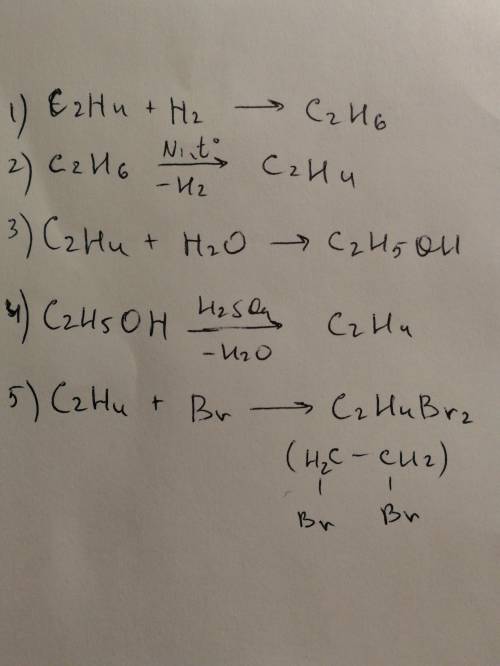 1) C2H4 + H2 → C2H6
2) C2H6 Ni, t° → -H2 C2H4
3) C2H4 + H2O → C2H5OH
4) C2H5OH H2SO4 → -H2O C2H4
5) C2H4 + Br → C2H4Br2
(H2C - CH2)
Br Br